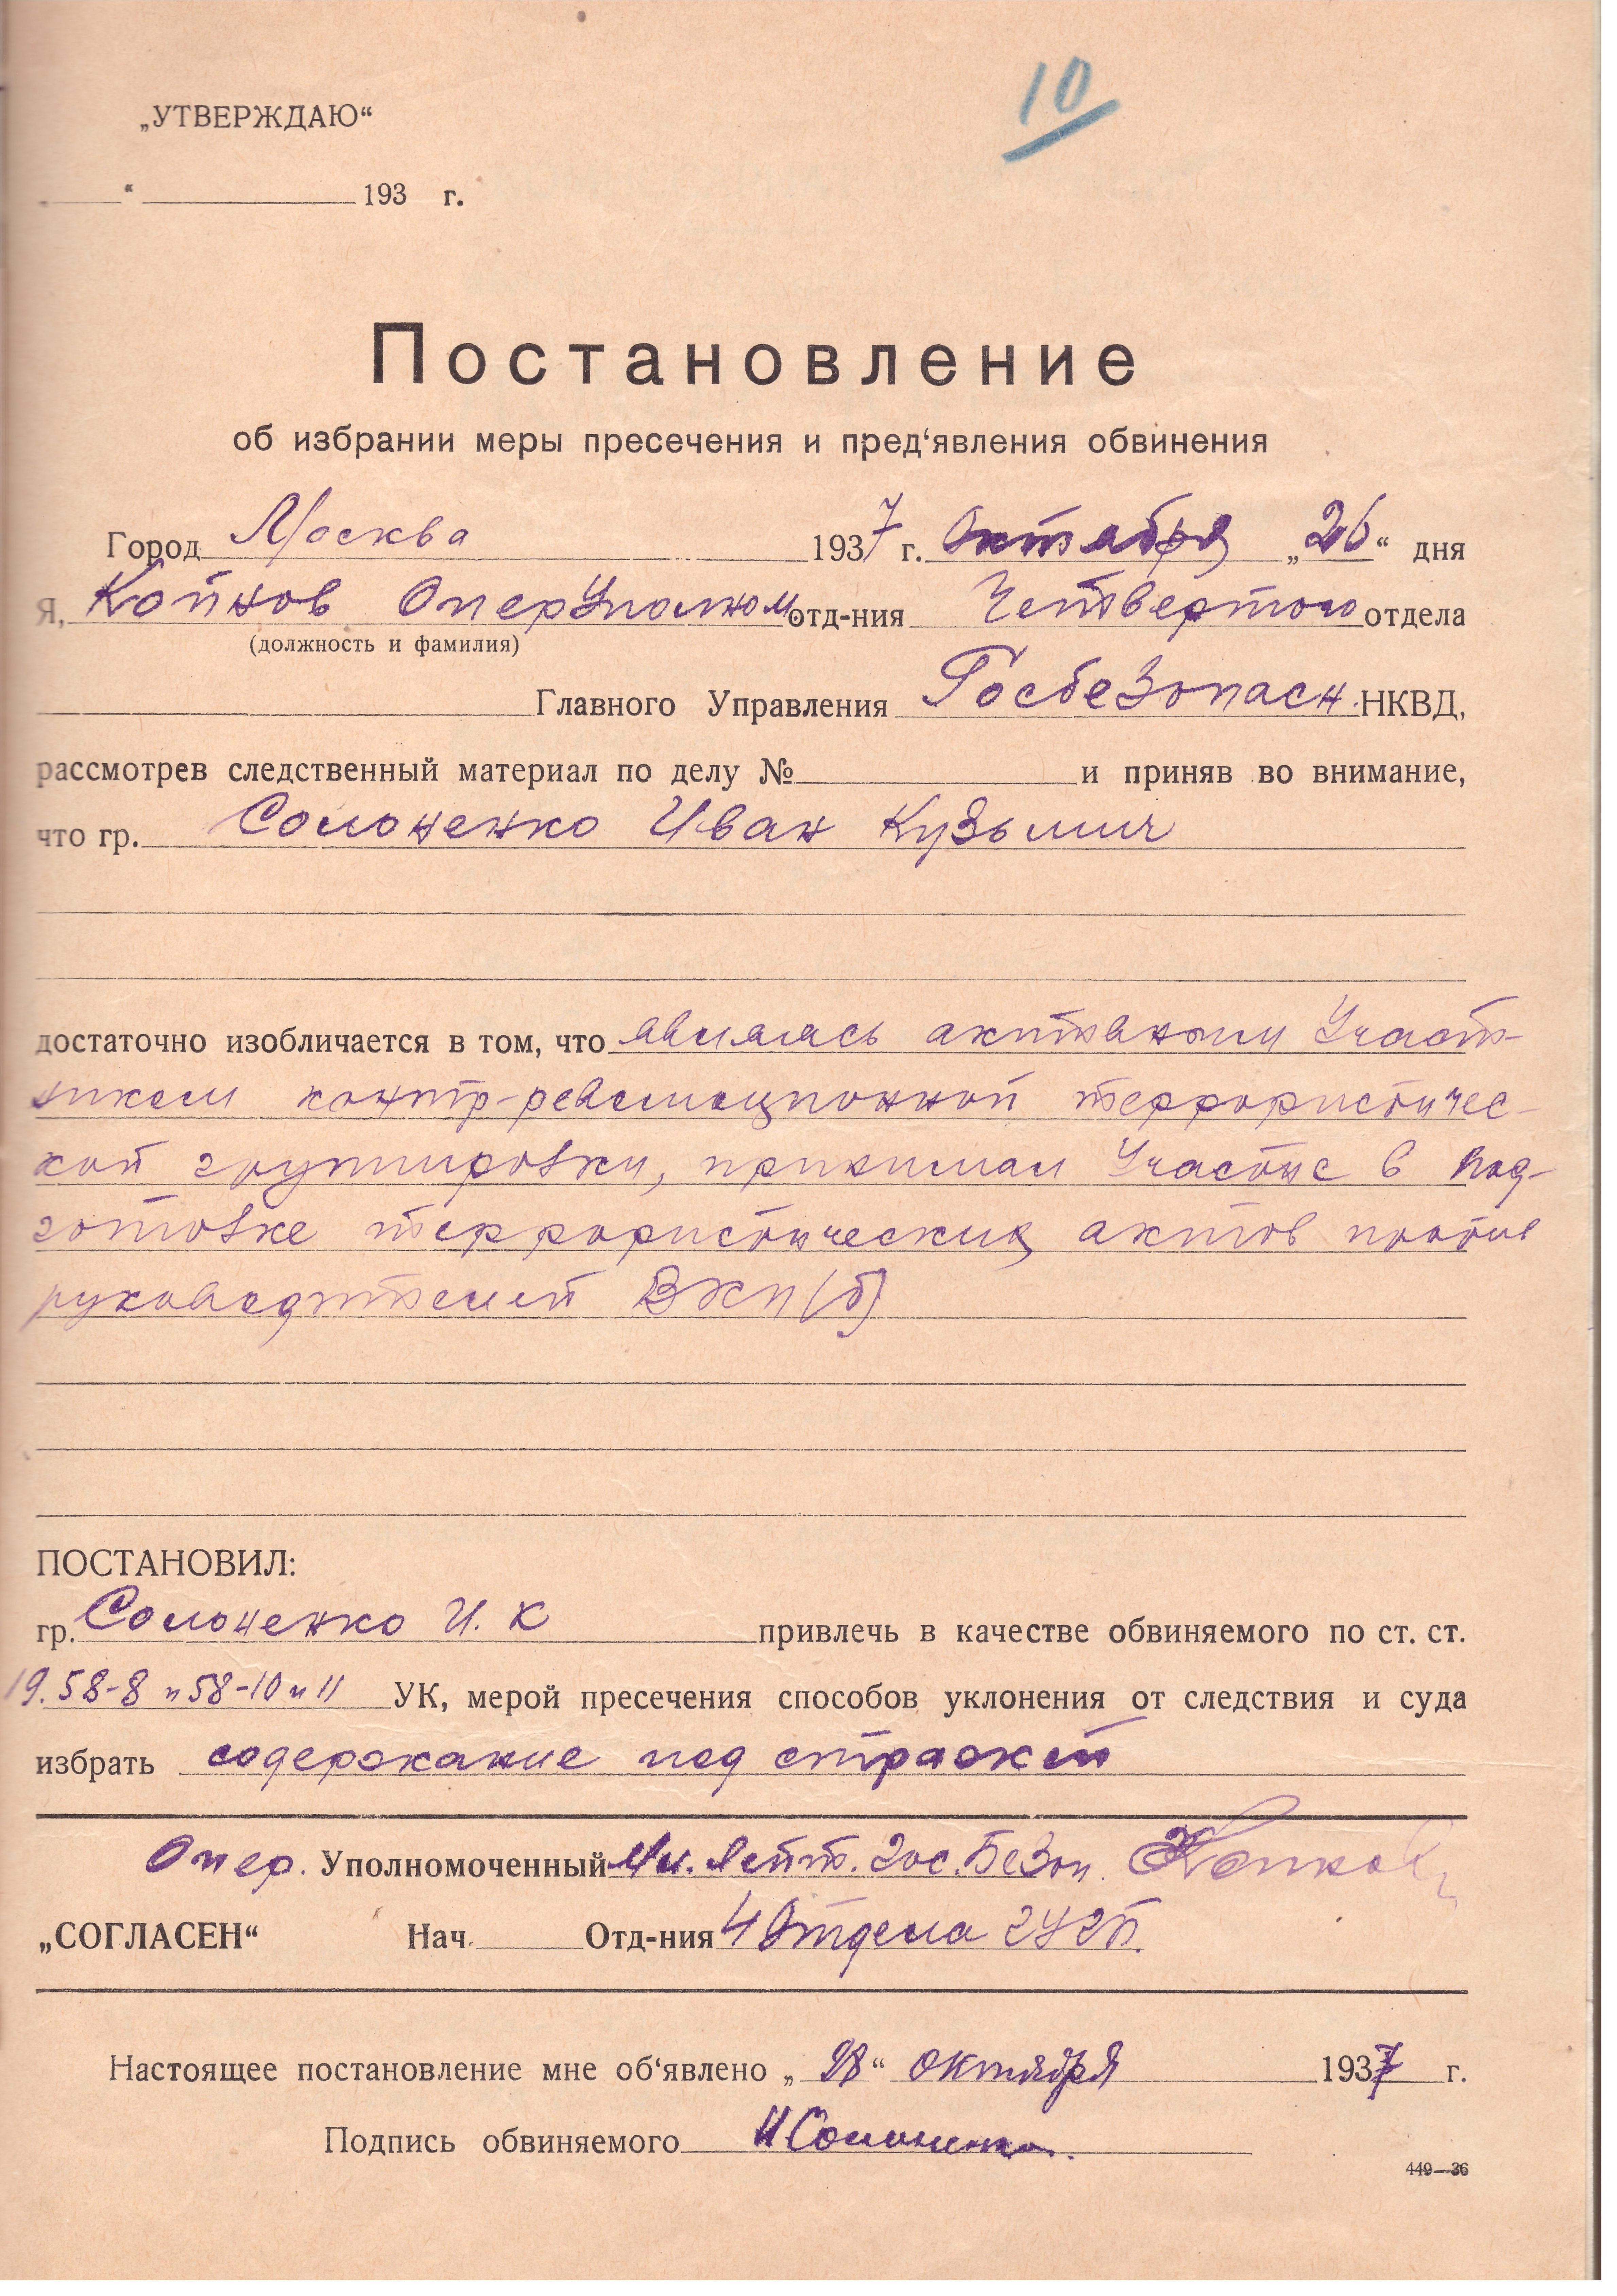 10
„УТВЕРЖДАЮ“
“ 193 г.
Постановление
об избрании меры пресечения и пред‘явления обвинения
Город Москва 1937 г. Октября „26“ дня
Я, Копнов ОперУполном. отд-ния Четвертого отдела
(должность и фамилия)
Главного Управления Госбезопасн. НКВД,
рассмотрев следственный материал по делу № и приняв во внимание,
что гр. Солоненко Иван Кузьмич
достаточно изобличается в том, что являлась активным Участ-
ником контр-революционной террористичес-
кой группировки, принимал Участие в под-
готовке террористических актов против
руководителей ВКП(б)
ПОСТАНОВИЛ:
гр. Солоненко И. К привлечь в качестве обвиняемого по ст. ст.
19.58-8 и 58-10 и 11 УК, мерой пресечения способов уклонения от следствия и суда
избрать содержание под стражей
Опер. Уполномоченный Мл. Лейт. Гос. Безоп.
„СОГЛАСЕН“ Нач. Отд-ния 4 Отдела ГУГБ.
Настоящее постановление мне об‘явлено „28“ октября 1937 г.
Подпись обвиняемого И Солоненко.
449—36